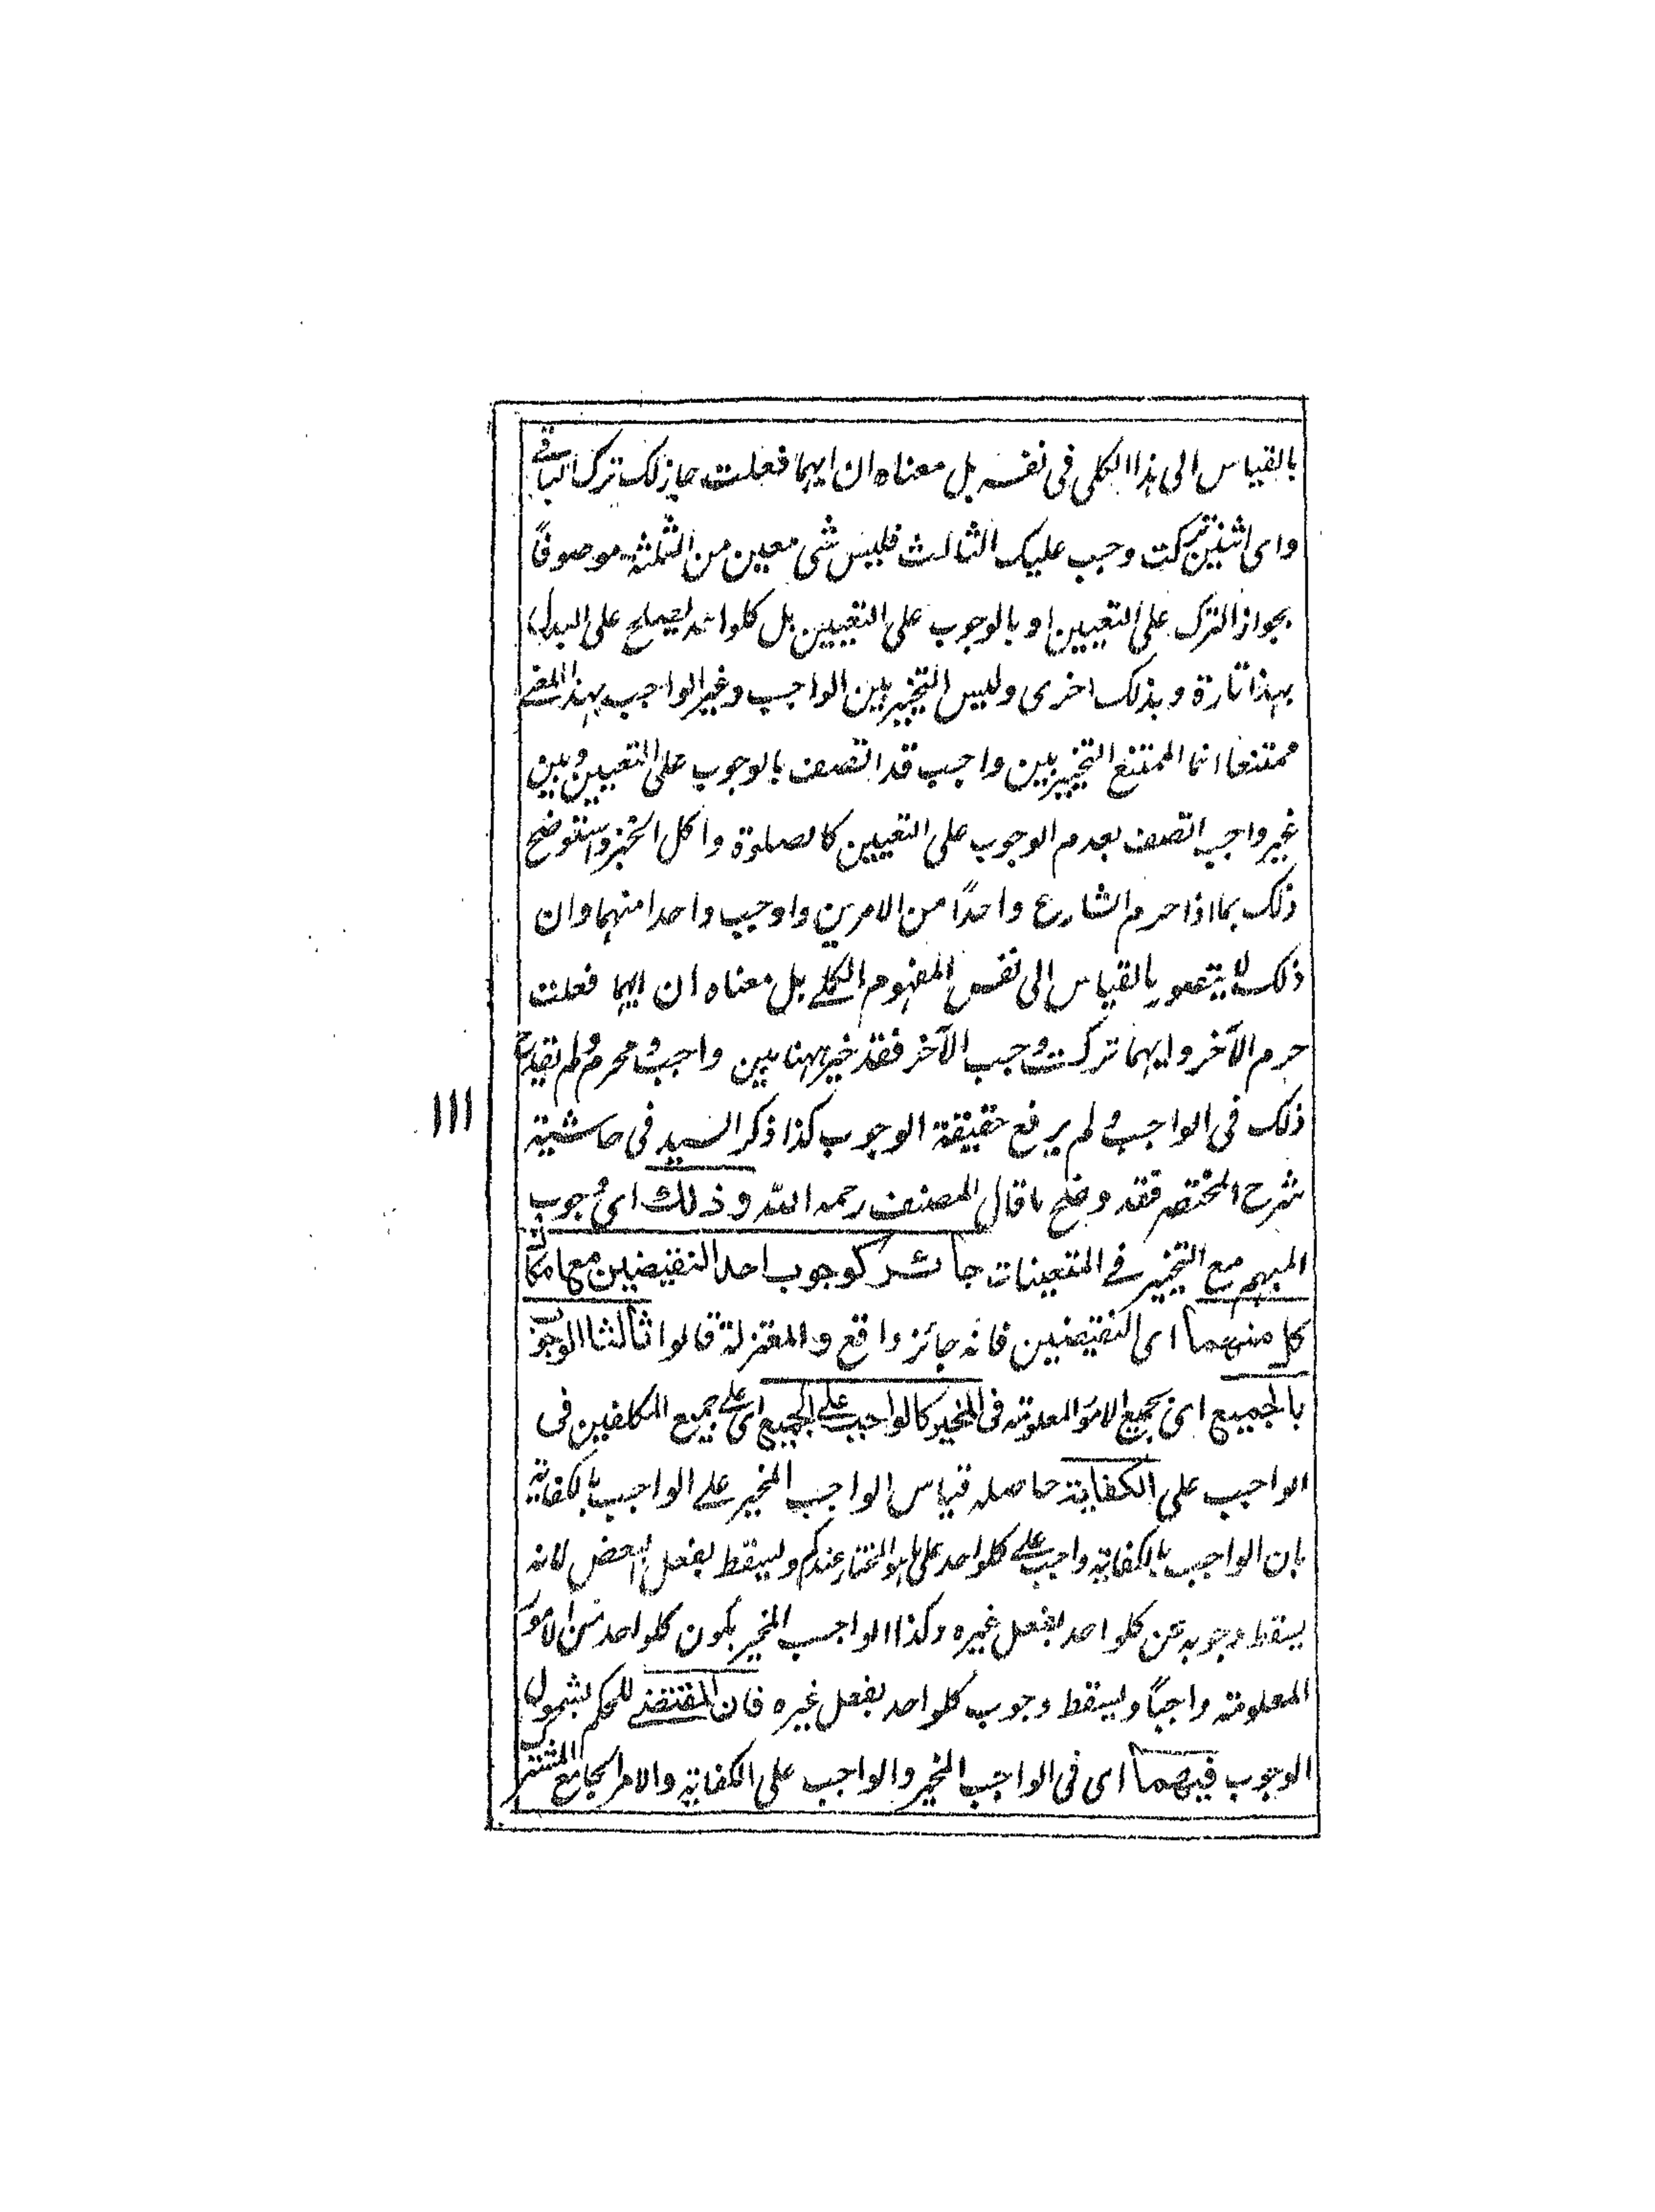 بالقياس الى هذا الكلى فى نفسه بل معناه ان ايهما فعلت جاز لك ترك الباقے
واى اثنين تركت وجب عليك الثالث فليس شى معين من الثلثة موصوفًا
بجواز الترك على التعيين او بالوجوب على التعيين بل كلواحد يصلح على البدل
بهذا تارة و بذلك اخرى وليس التخيير بين الواجب وغير الواجب بهذا المعنے
ممتنعا انما الممتنع التخيير بين واجب قد اتصف بالوجوب على التعيين وبين
غير واجب اتصف بعدم الوجوب على التعيين كالصلوة واكل الخبز واستوضح
ذلك بما اذا حرم الشارع واحدًا من الامرين واوجب واحدا منهما وان
ذلك لا يتصور بالقياس الى نفس المفهوم الكلے بل معناه ان ايهما فعلت
حرم الآخر وايهما تركت وجب الآخر فقد خير ههنا بين واجب ومحرم ولم يقدح
ذلك فى الواجب ولم يرفع حقيقة الوجوب كذا ذكر السيد فى حاشية
١١١
شرح المختصر فقد وضح ما قال المصنف رحمه الله وذلك اى وجوب
المبهم مع التخيير فے المتعينات جائز كوجوب احد النقيضين مع امكان
كل منهما اى النقيضين فانه جائز واقع والمعتزلة قالوا ثالثا الوجوب
بالجميع اى بجميع الامور المعلومة فى المخير كالواجب علے الجميع اى علے جميع المكلفين فى
الواجب على الكفاية حاصله قياس الواجب المخير علے الواجب بالكفاية
بان الواجب بالكفاية واجب علے كلواحد على ما هو المختار عندكم ويسقط بفعل البعض لانه
يسقط وجوبه عن كلواحد بفعل غيره وكذا الواجب المخير يكون كلواحد من الامور
المعلومة واجبًا ويسقط وجوب كلواحد بفعل غيره فان المقتضے للحكم بشمول
الوجوب فيهما اى فى الواجب المخير والواجب على الكفاية والامر الجامع المشترك